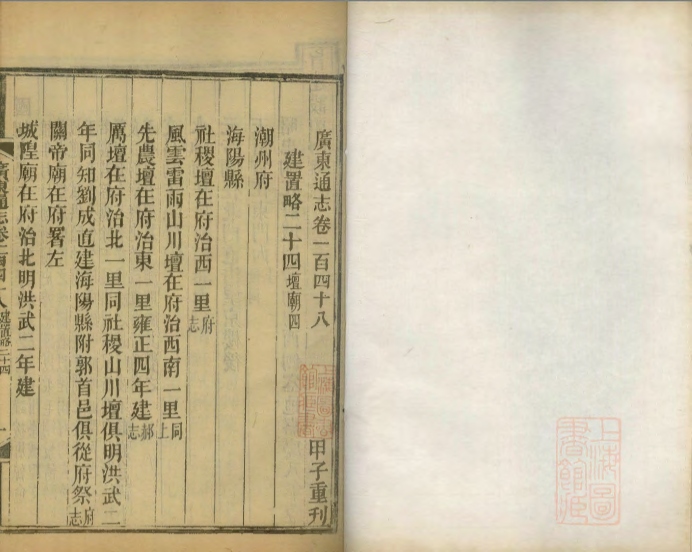 廣東通志卷一百四十八　甲子重刊
建置略二十四壇廟四
潮州府
海陽縣
社稷壇在府治西一里府志
風雲雷雨山川壇在府治西南一里同上
先農壇在府治東一里雍正四年建郝志
厲壇在府治北一里同社稷山川壇俱明洪武二
年同知劉成直建海陽縣附郭首邑俱從府祭府志
關帝廟在府署左
城隍廟在府治北明洪武二年建
廣東通志卷一百四十八　建置略二十四
上海圖書館藏